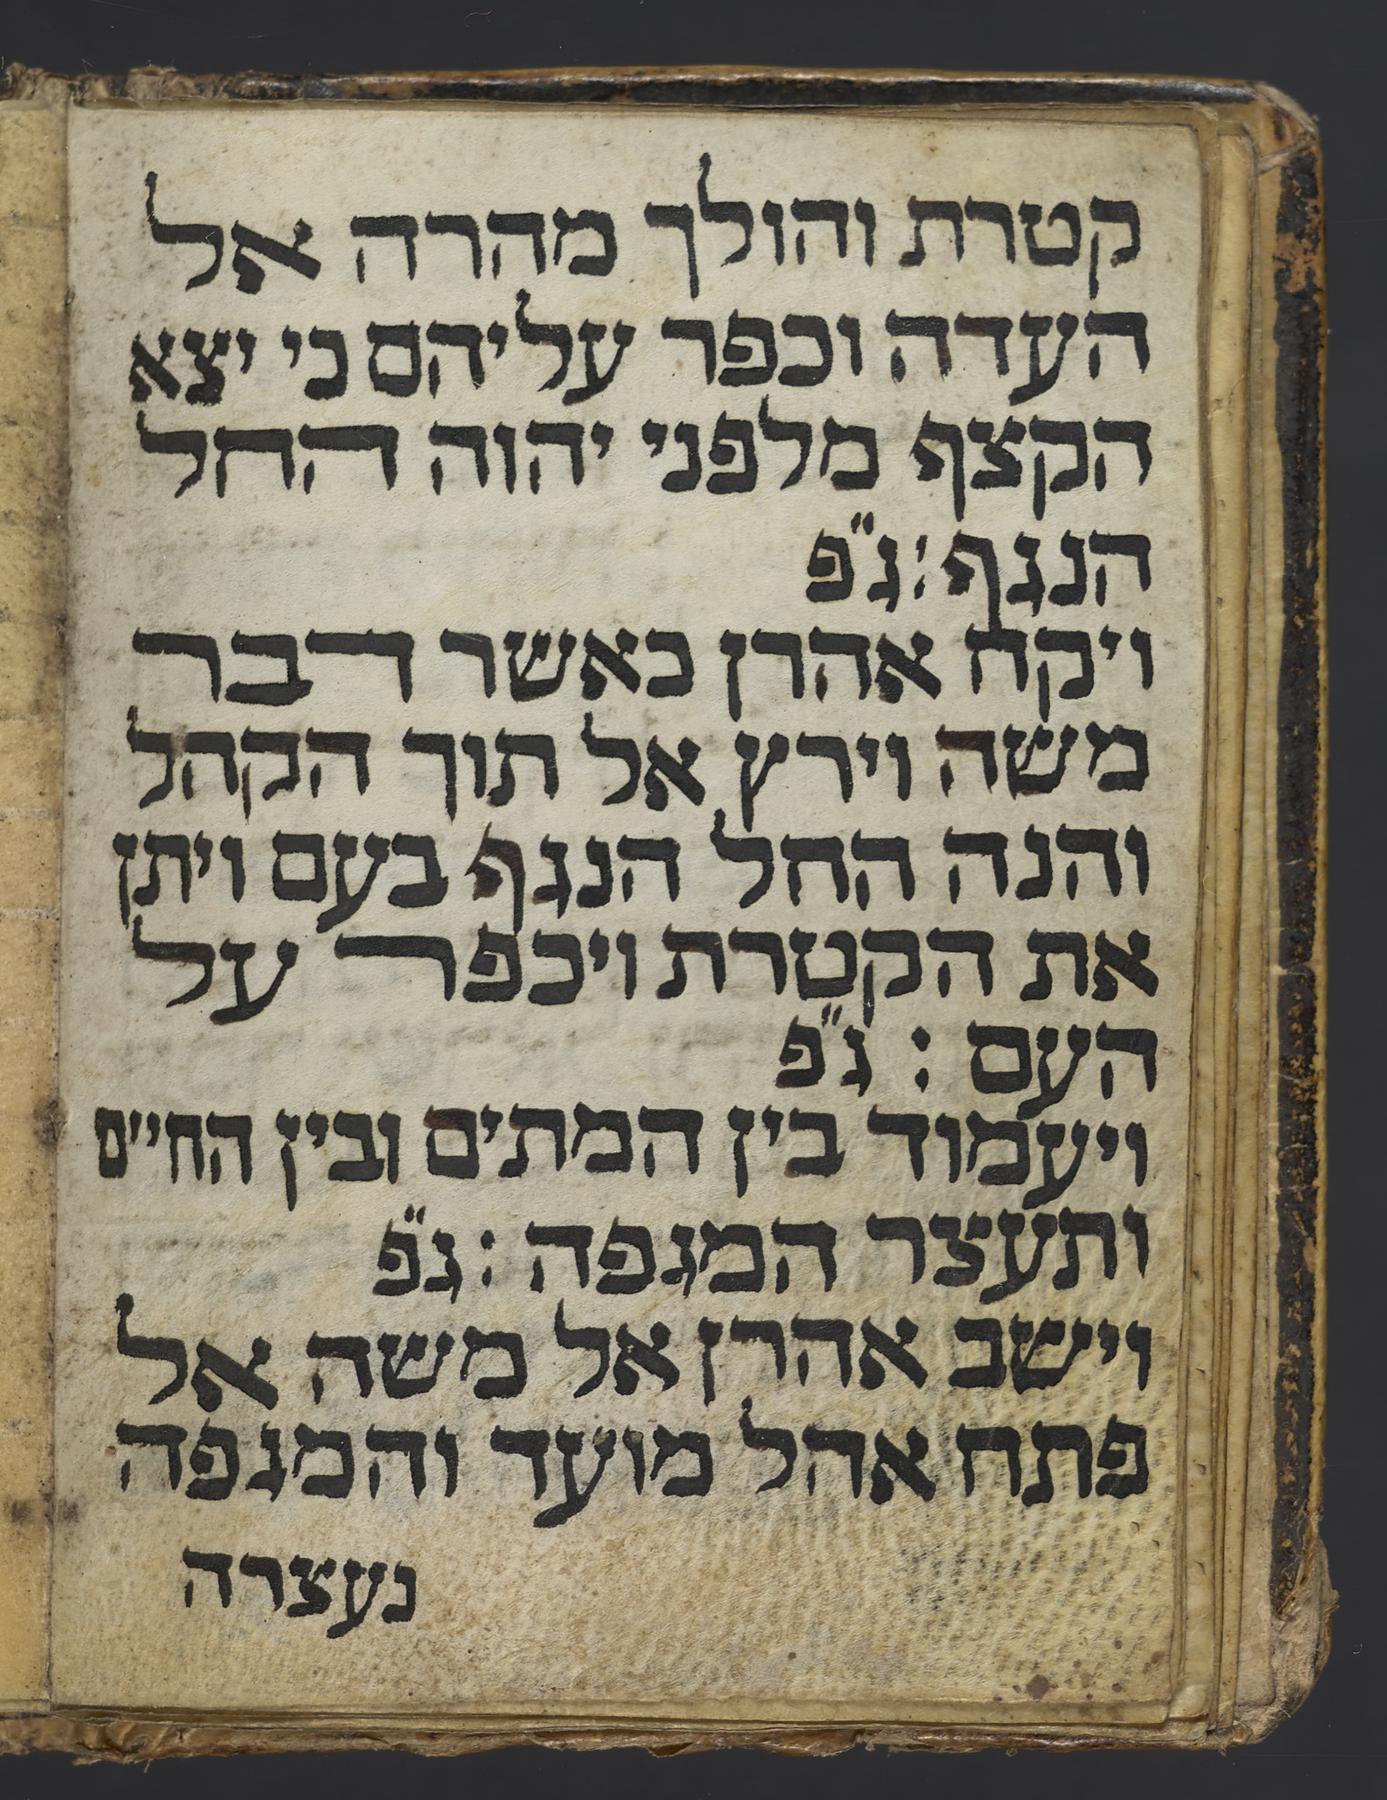 קטרת והולך מהרה אל
העדה וכפר עליהם כי יצא
הקצף מלפני יהוה החל
הנגף: ג"פ
ויקח אהרן כאשר דבר
משה וירץ אל תוך הקהל
והנה החל הנגף בעם ויתן
את הקטרת ויכפר על
העם : ג"פ
ויעמוד בין המתים ובין החיים
ותעצר המגפה : ג"פ
וישב אהרן אל משה אל
פתח אהל מועד והמגפה
נעצרה